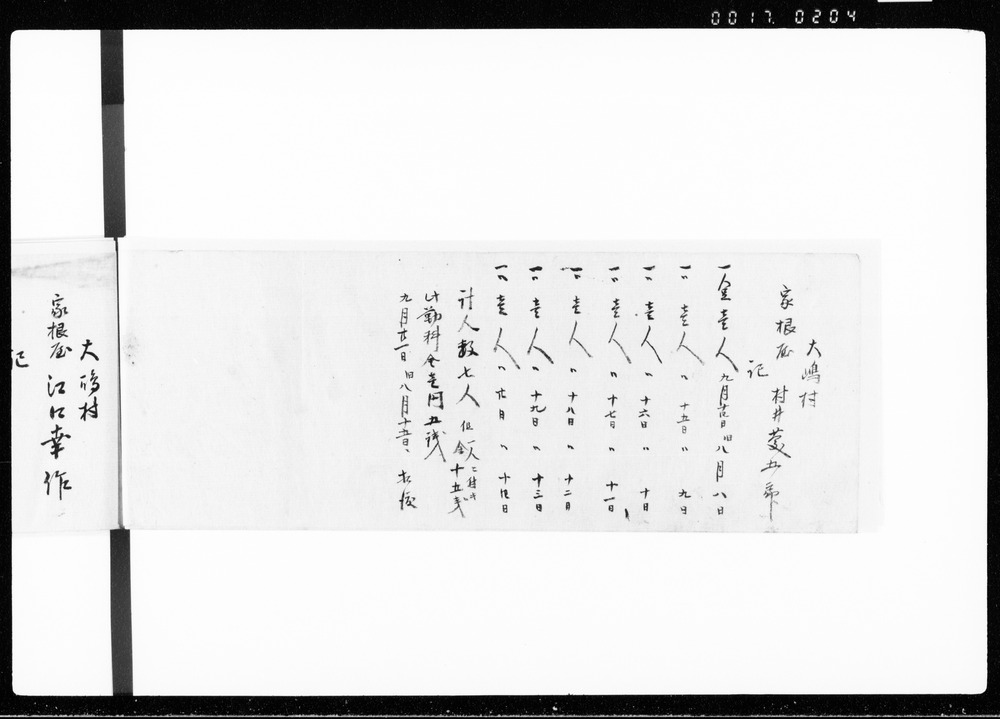 0017. 0204
大嶋村
家根屋 村井 五郎
記
一金壱人 九月十四日旧八月八日
一〃壱人 〃十五日〃九日
一〃壱人 〃十六日〃十日
一〃壱人 〃十七日〃十一日
一〃壱人 〃十八日〃十二日
一〃壱人 〃十九日〃十三日
一〃壱人 〃廿日〃十四日
計人数七人 但一人ニ付キ
金十五戋
此勤料金壱円五銭
九月廿一日旧八月十五日
大嶋村
家根屋 江口幸作
記